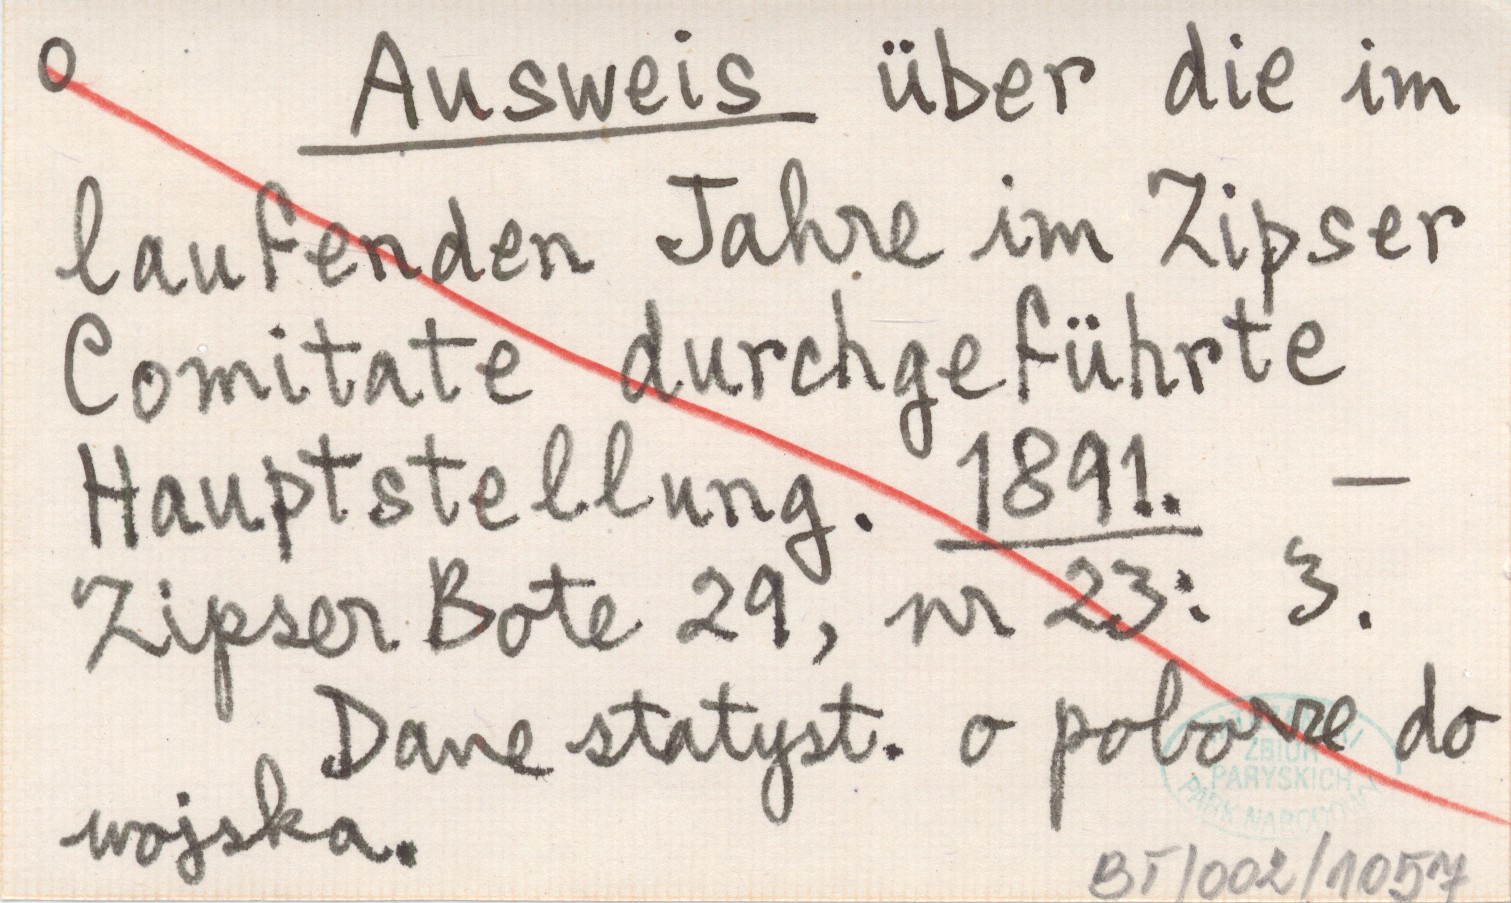 O Ausweis über die im
laufenden Jahre im Zipser
Comitate durchgeführte
Hauptstellung. 1891. —
Zipser Bote 29, nr 23: 3.
Dane statyst. o poborze do
wojska.
ZBIORY
PARYSKICH
PARK NARODOWY
BT/002/1057